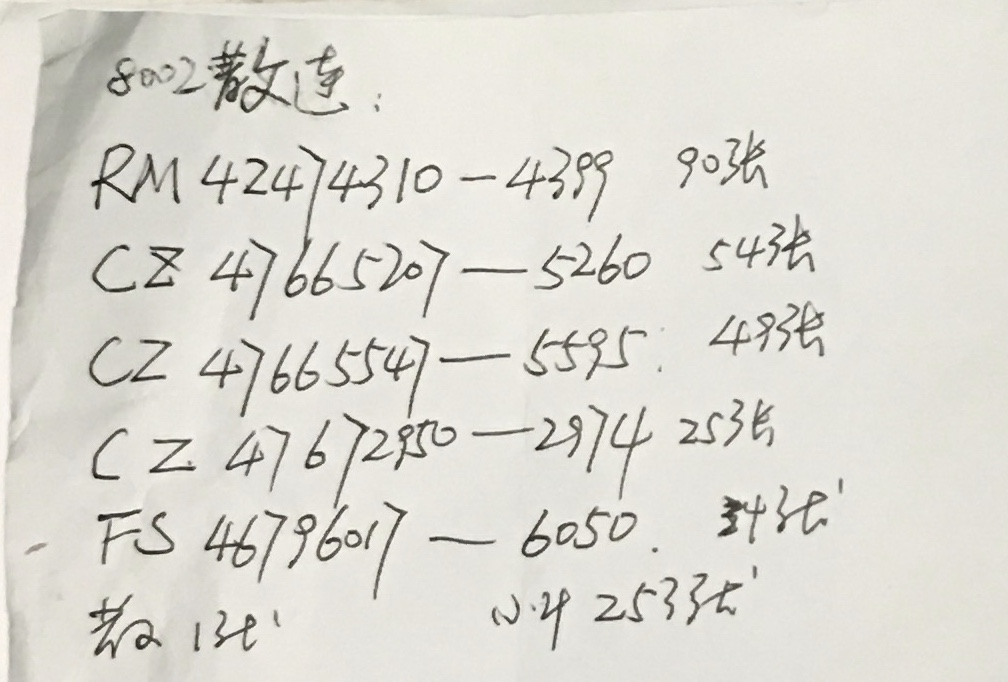 8002散连:
RM 42474310-4399 90张
CZ 47665207—5260 54张
CZ 47665547—5595. 49张
CZ 47672950—2974 25张
FS 46796017—6050. 34张
散1张 小计253张